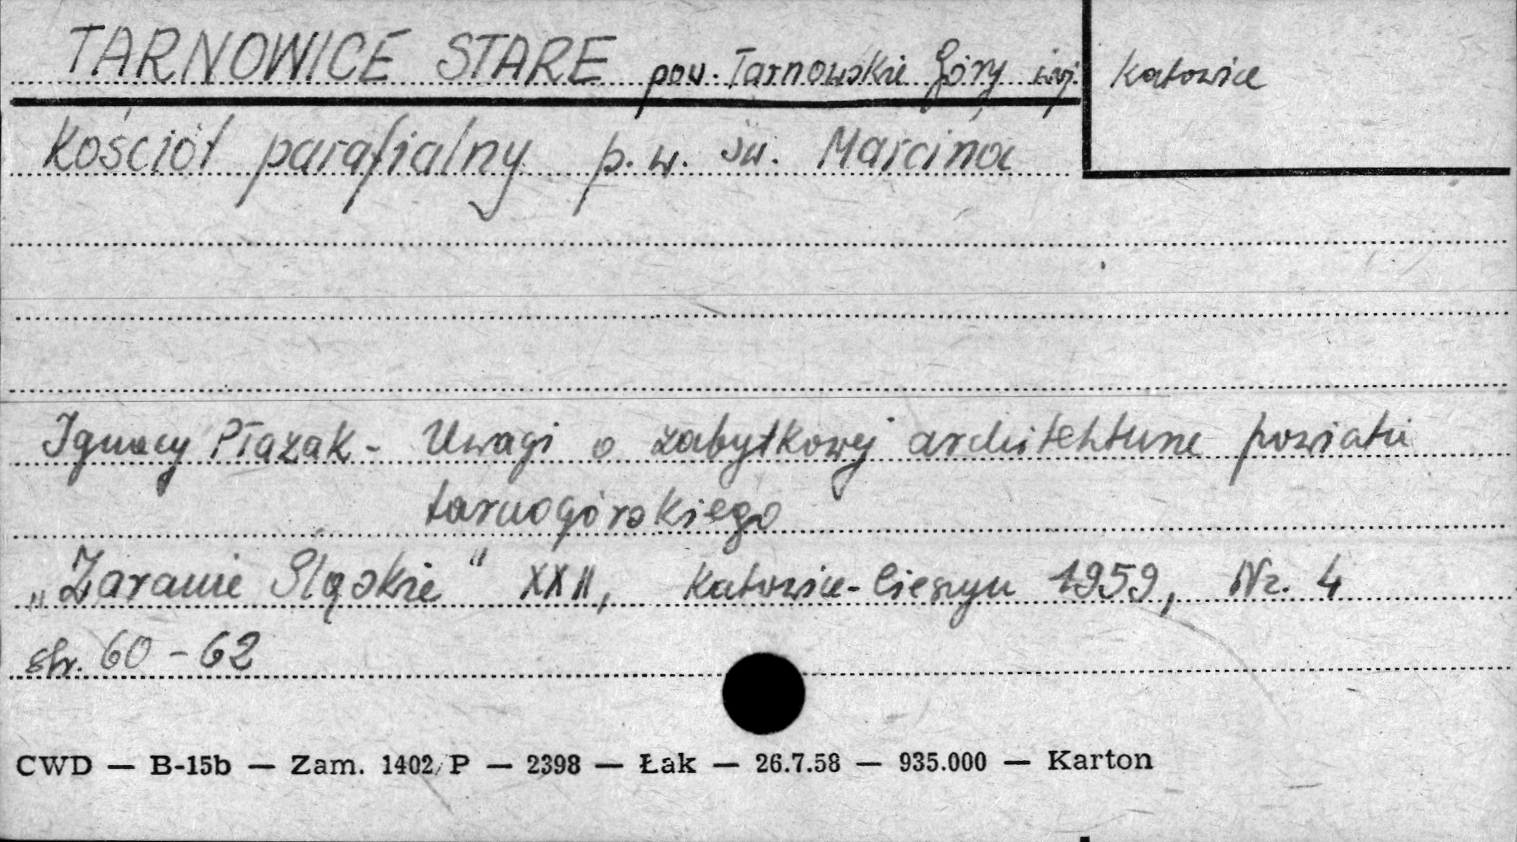 TARNOWICE STARE pow. Tarnowskie Góry woj. Katowice
Kościół parafialny p.w. św. Marcina
Ignacy Płazak - Uwagi o zabytkowej architekturze powiatu
tarnogórskiego
„Zaranie Śląskie" XXII, Katowice-Cieszyn 1959, Nr. 4
str. 60-62
CWD — B-15b — Zam. 1402/P — 2398 — Łak — 26.7.58 — 935.000 — Karton